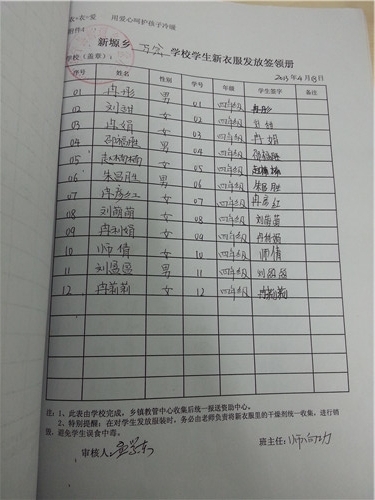 衣>衣>爱 用爱心呵护孩子冷暖
附件4
新塬乡 学校学生新衣服发放签领册
学校(盖章): 2013年4月13日
序号 姓名 性别 学号 年级 学生签字 备注
01 冉彤 男 01 四年级 冉彤
02 刘甜 女 02 四年级 刘甜
03 冉娟 女 03 四年级 冉娟
04 邵福胜 男 04 四年级 邵福胜
05 赵楠楠 女 05 四年级 赵楠楠
06 朱昌胜 男 06 四年级 朱昌胜
07 冉彦红 女 07 四年级 冉彦红
08 刘萌萌 女 08 四年级 刘萌萌
09 冉利娟 女 09 四年级 冉利娟
10 师倩 女 10 四年级 师倩
11 刘 男 11 四年级 刘
12 冉莉莉 女 12 四年级 冉莉莉
注:1、此表由学校完成,乡镇教管中心收集后统一报送资助中心。
2、特别提醒:在对学生发放服装时,务必由老师负责将新衣服里的干燥剂统一收集,进行销
毁,避免学生误食中毒。
审核人: 班主任:师向功